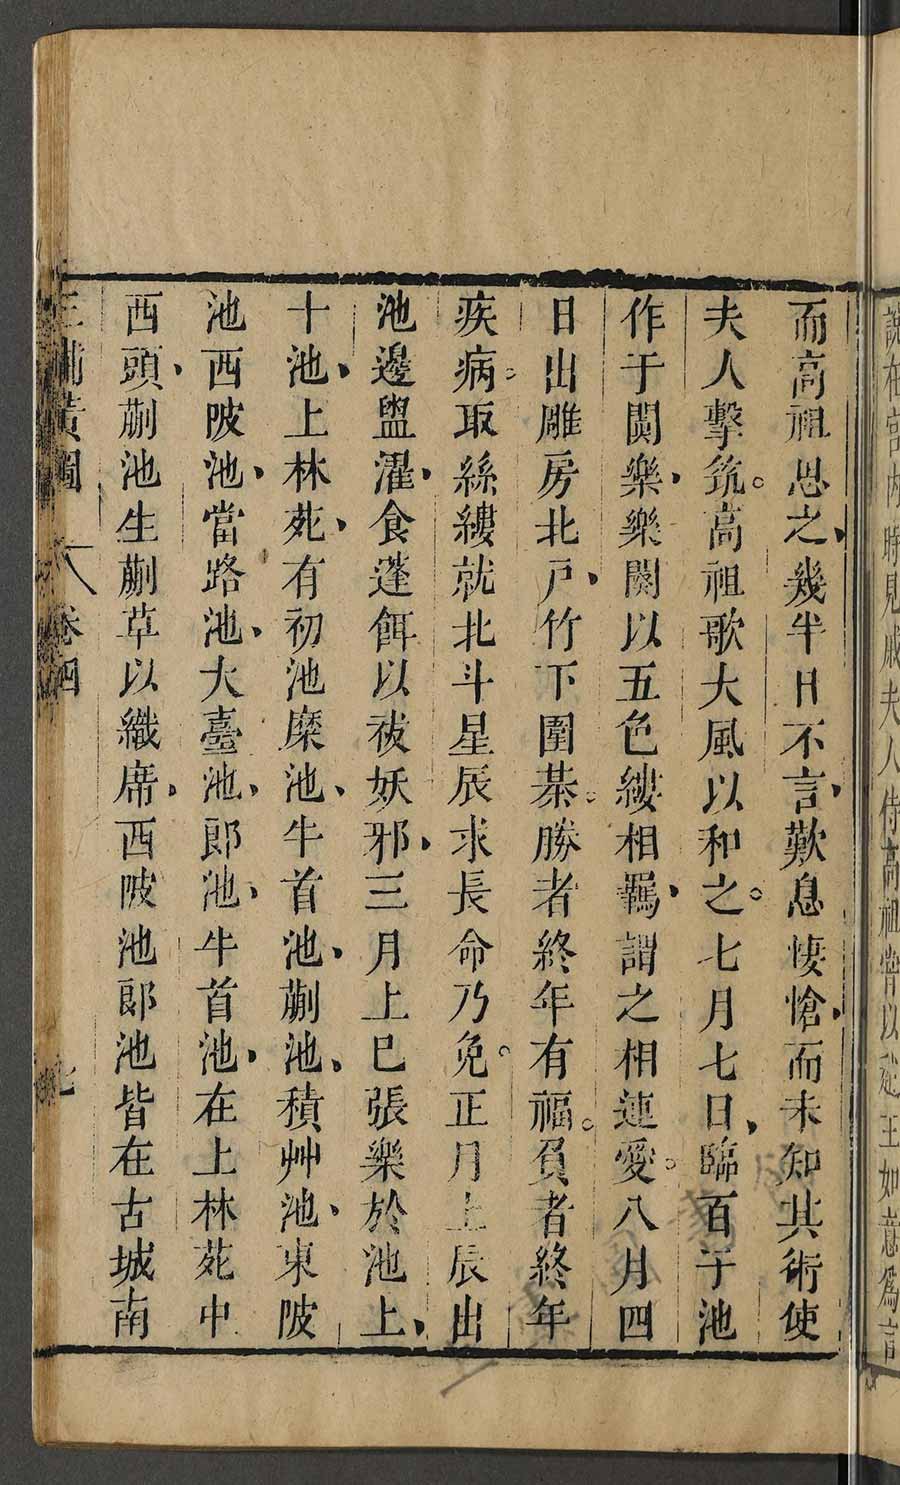 說在宮內時見戚夫人侍高祖嘗以趙王如意為言
而高祖思之幾半日不言歎息悽愴而未知其術使
夫人擊筑高祖歌大風以和之七月七日臨百子池
作于闐樂樂闋以五色縷相羈謂之相連愛八月四
日出雕房北戶竹下圍棊勝者終年有福負者終年
疾病取絲縷就北斗星辰求長命乃免正月上辰出
池邊盥濯食蓬餌以祓妖邪三月上巳張樂於池上
十池上林苑有初池糜池牛首池蒯池積艸池東陂
池西陂池當路池大臺池郎池牛首池在上林苑中
西頭蒯池生蒯草以織席西陂池郎池皆在古城南
三輔黃圖 卷四 七